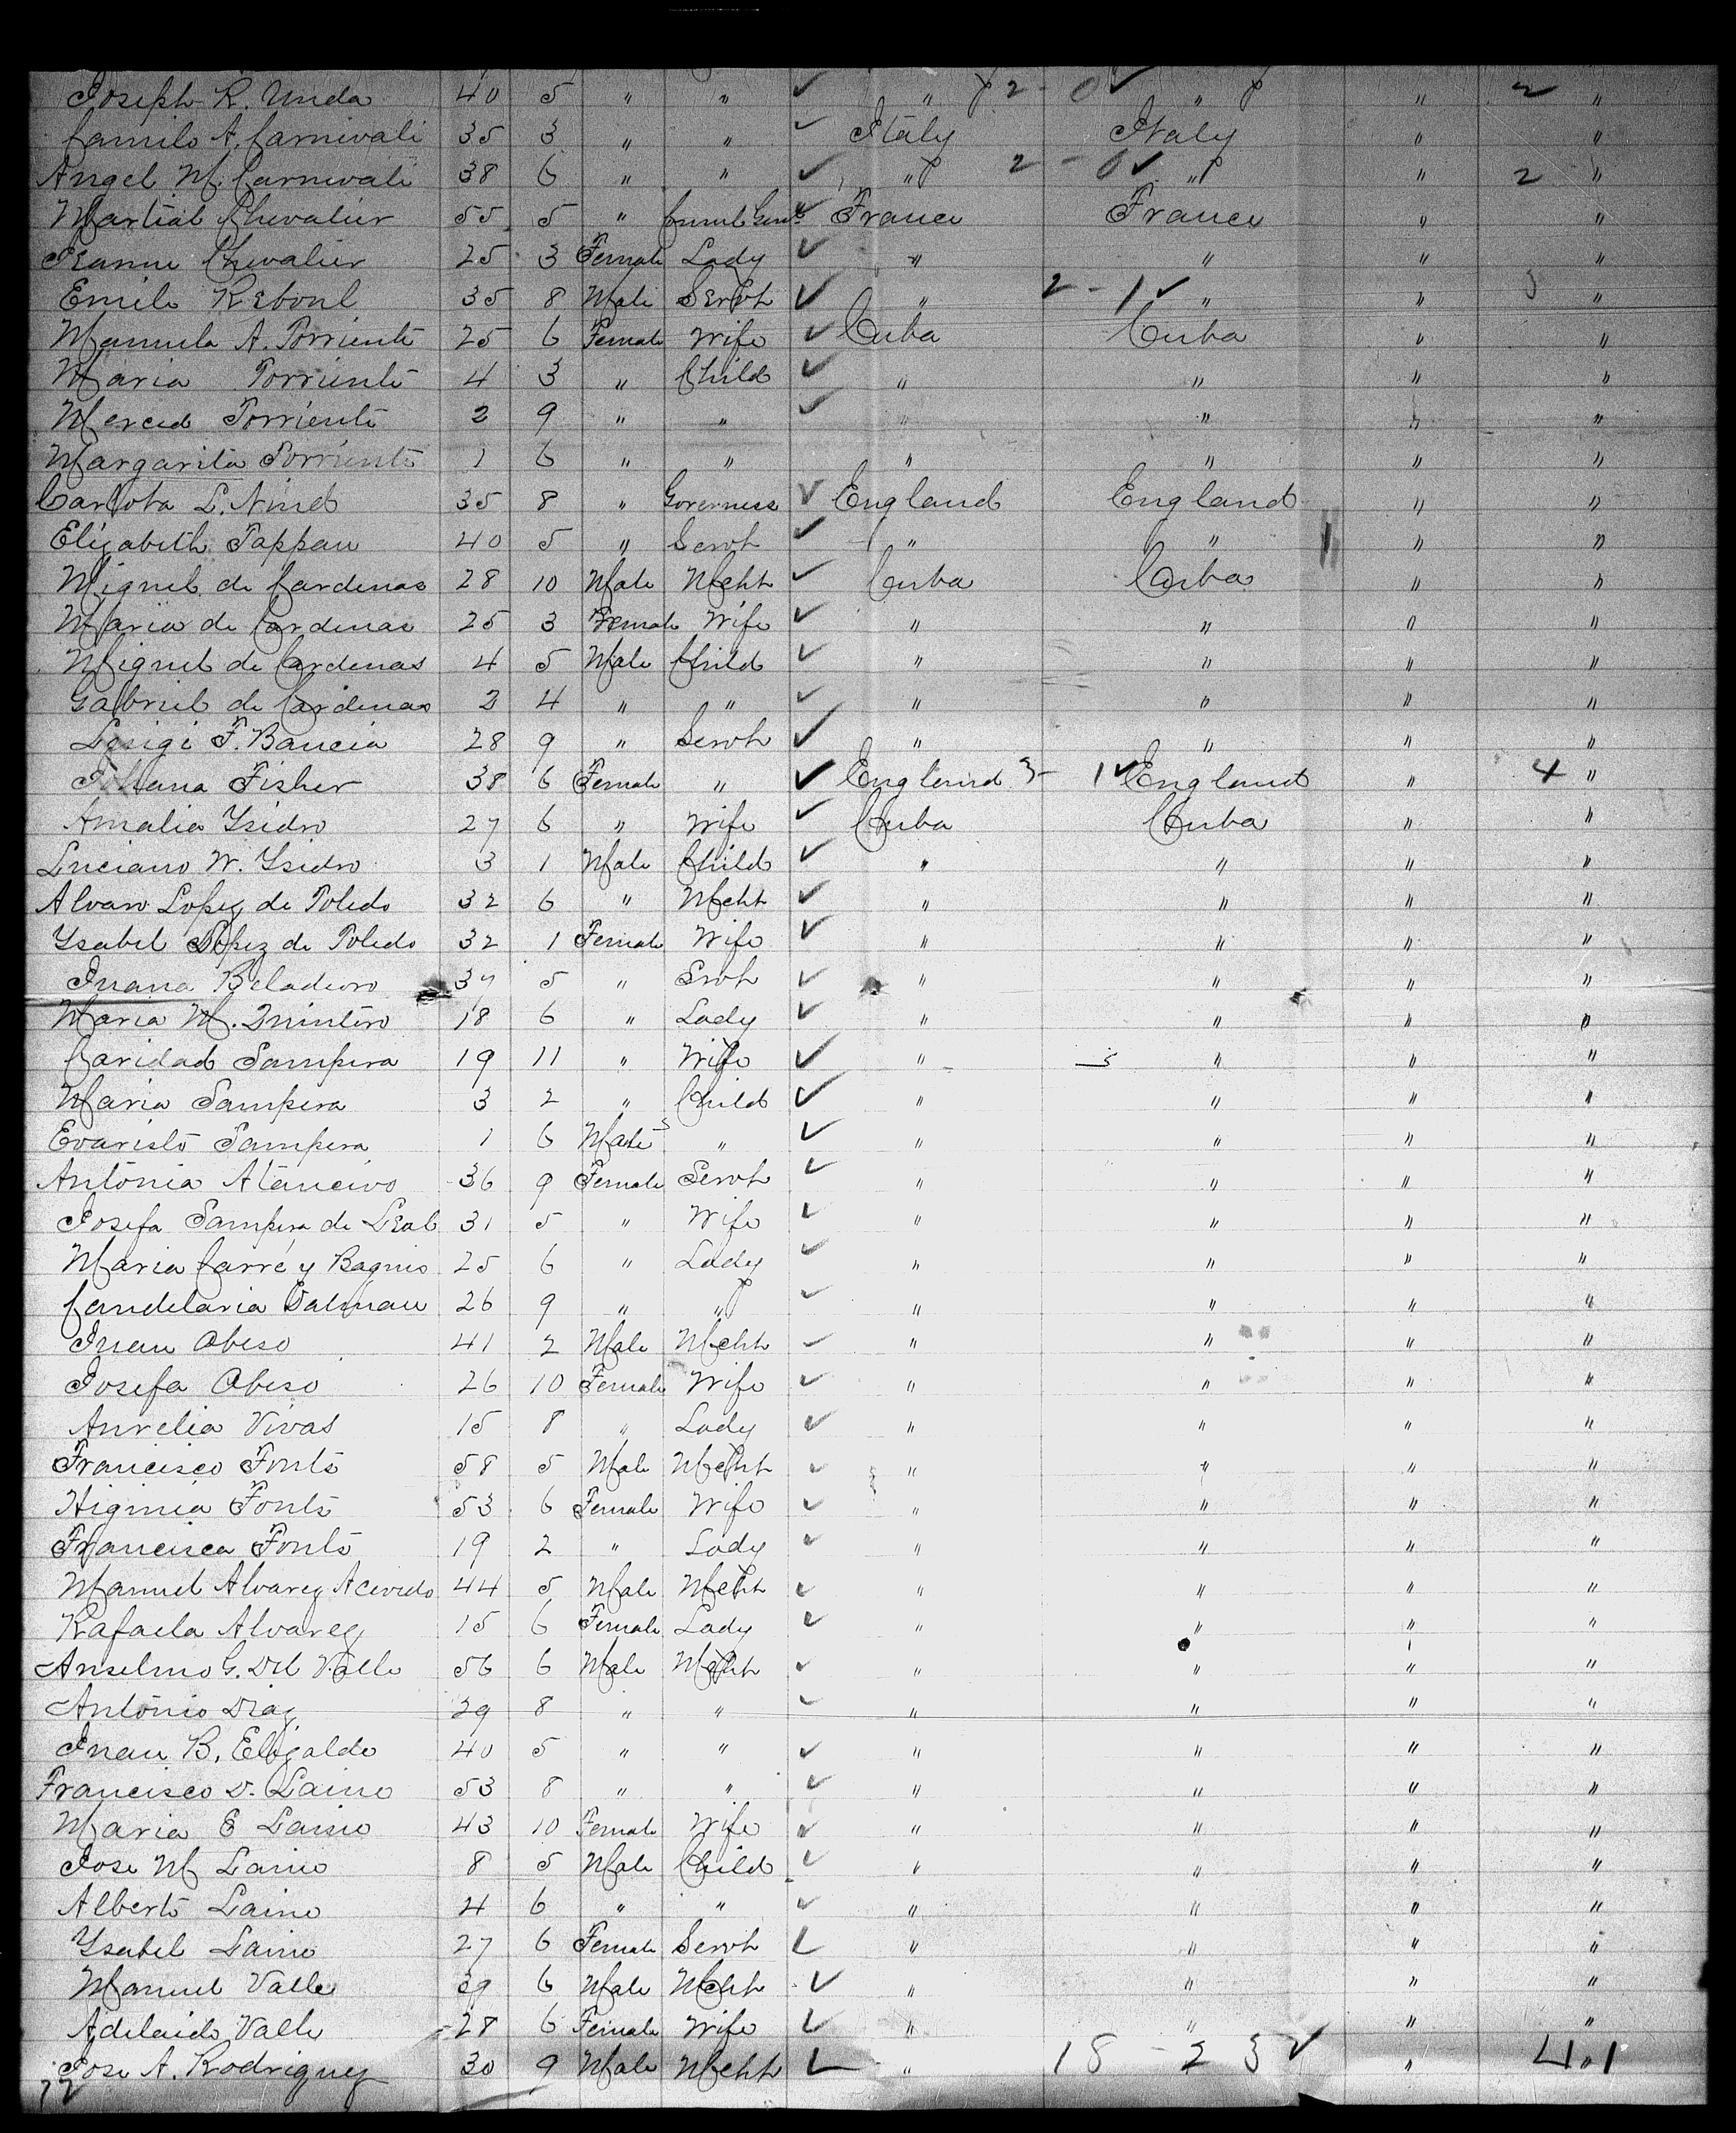 Joseph R. Unda 40 5 " " ✓ " 2 - 0 ✓ " " 2 "
Camilo A. Carnivali 35 3 " " ✓ Italy Italy " "
Angel M. Carnivali 38 6 " " ✓ " 2 - 0 ✓ " " 2 "
Martial Chevalier 55 5 " ✓ France France " "
Jeanne Chevalier 25 3 Female Lady ✓ " " " "
Emile Reboul 35 8 Male Servt ✓ " 2 - 1 ✓ " " 3 "
Manuela A. Torriente 25 6 Female Wife ✓ Cuba Cuba " "
Maria Torriente 4 3 " Child ✓ " " " "
Merced Torriente 2 9 " " ✓ " " " "
Margarita Torriente 1 6 " " " " " "
Carlota L. Nind 35 8 " Governess ✓ England England " "
Elizabeth Tappan 40 5 " Servt ✓ " " 1 " "
Miguel de Cardenas 28 10 Male Mcht ✓ Cuba Cuba " "
Maria de Cardenas 25 3 Female Wife ✓ " " " "
Miguel de Cardenas 4 5 Male Child ✓ " " " "
Gabriel de Cardenas 2 4 " " ✓ " " " "
Luigi F. Bancia 28 9 " Servt ✓ " " " "
Johana Fisher 38 6 Female " ✓ England 3 - 1 ✓ England " 4 "
Amalia Ysidro 27 6 " Wife ✓ Cuba Cuba " "
Luciano W. Ysidro 3 1 Male Child ✓ " " " "
Alvaro Lopez de Toledo 32 6 " Mcht ✓ " " " "
Ysabel Lopez de Toledo 32 1 Female Wife ✓ " " " "
Juana Beladoro 37 5 " Srvt ✓ " " " "
Maria M. Quintero 18 6 " Lady ✓ " " " "
Caridad Sampera 19 11 " Wife ✓ " " " "
Maria Sampera 3 2 " Child ✓ " " " "
Evaristo Sampera 1 6 Male " ✓ " " " "
Antonia 36 9 Female Servt ✓ " " " "
Josefa Sampera de Leal 31 5 " Wife ✓ " " " "
Maria Carré y 25 6 " Lady ✓ " " " "
Candelaria Dalmau 26 9 " " ✓ " " " "
Juan Obeso 41 2 Male Mcht ✓ " " " "
Josefa Obeso 26 10 Female Wife ✓ " " " "
Aurelia Vivas 15 8 " Lady ✓ " " " "
Francisco Fonts 58 5 Male Mcht ✓ " " " "
Higinia Fonts 53 6 Female Wife ✓ " " " "
Francisca Fonts 19 2 " Lady ✓ " " " "
Manuel Alvarez Acevedo 44 5 Male Mcht ✓ " " " "
Rafaela Alvarez 15 6 Female Lady ✓ " " " "
Anselmo G. Del Valle 56 6 Male Mcht ✓ " " " "
Antonio Diaz 29 8 " " ✓ " " " "
Juan B. Elizalde 40 5 " " ✓ " " " "
Francisco D. Laino 53 8 " " ✓ " " " "
Maria E Laino 43 10 Female Wife ✓ " " " "
Jose M Laino 8 5 Male Child ✓ " " " "
Alberto Laino 4 6 " " ✓ " " " "
Ysabel Laino 27 6 Female Servt ✓ " " " "
Manuel Valle 39 6 Male Mcht ✓ " " " "
Adelaide Valle 28 6 Female Wife ✓ " " " "
Jose A. Rodriguez 30 9 Male Mcht ✓ " 18 - 23 ✓ " 41 "
72